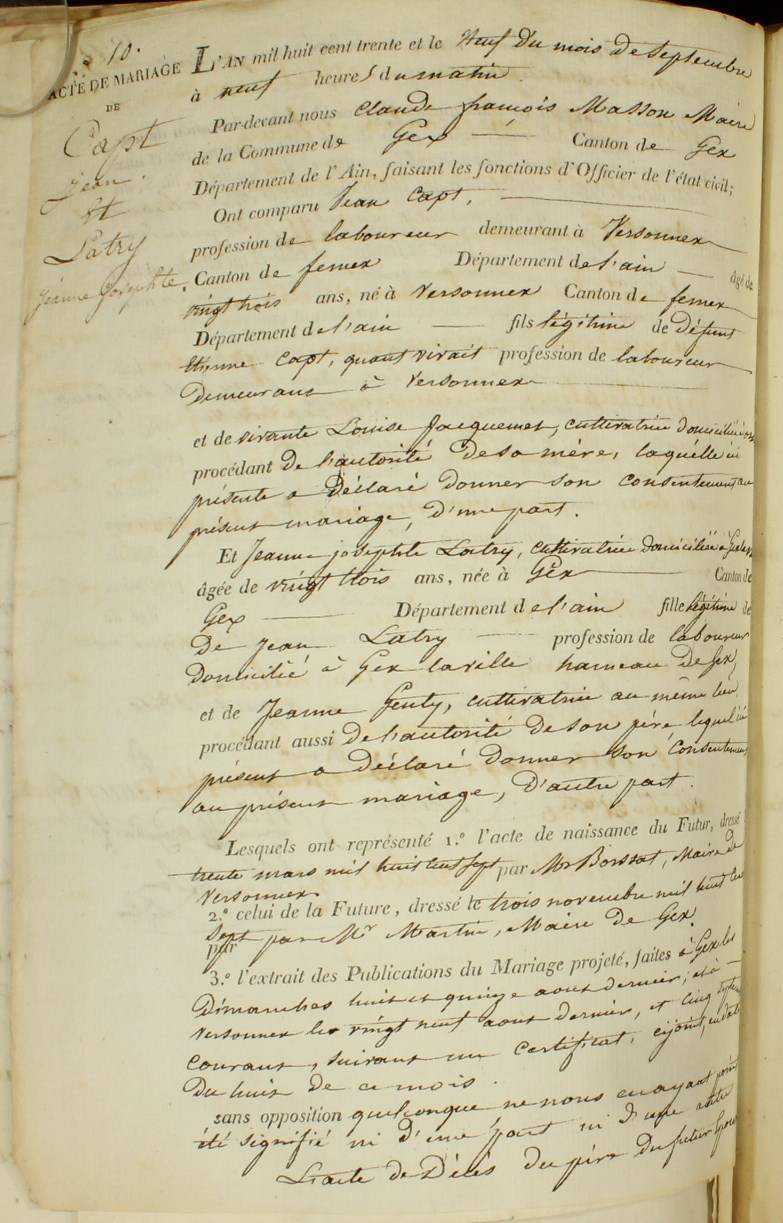 10.
ACTE DE MARIAGE
DE
Capt
Jean.
Et
Latry
Jeanne Josephte.
L'AN mil huit cent trente et le Neuf Du mois De Septembre
à neuf heures du matin.
Par-devant nous Claude françois Masson Maire
de la Commune de Gex Canton de Gex
Département de l'Ain, faisant les fonctions d'Officier de l'état civil;
Ont comparu Jean Capt,
profession de laboureur demeurant à Versonnex
Canton de fernex Département de l'ain âgé de
vingt trois ans, né à Versonnex Canton de fernex
Département de l'ain fils légitime de Défunt
Etienne Capt, quant vivait profession de laboureur
Demeurant à Versonnex
et de vivante Louise Jacquemet, cultivatrice domiciliée
procédant De l'autorité De sa mère, laquelle ici
présente a Déclaré Donner son consentement au
présent mariage, D'une part.
Et Jeanne josephte Latry, cultivatrice domiciliée à
âgée de vingt trois ans, née à Gex Canton de
Gex Département de l'ain fille légitime de
De Jean Latry profession de laboureur
Domicilié à Gex laville hameau De Gex,
et de Jeanne Genty, cultivatrice au même lieu,
procédant aussi De l'autorité De son père lequel ici
présent a Déclaré Donner son Consentement
au présent mariage, D'autre part.
Lesquels ont représenté 1.º l'acte de naissance du Futur, dressé
trente mars mil huit cent sept par Mr Borssat, Maire de
Versonnex
2.º celui de la Future, dressé le trois novembre mil huit cent
Sept par Mr Martin, Maire De Gex.
par
3.º l'extrait des Publications du Mariage projeté, faites à Gex les
Dimanches huit et quinze aout dernier, et à
Versonnex les vingt neuf aout dernier, et cinq
courant, suivant un certificat, cijoint, en date
Du huit De ce mois.
sans opposition quelconque ne nous en ayant point
été signifié ni D'une part ni D'une autre
L'acte De Décès Du père Du futur Epoux